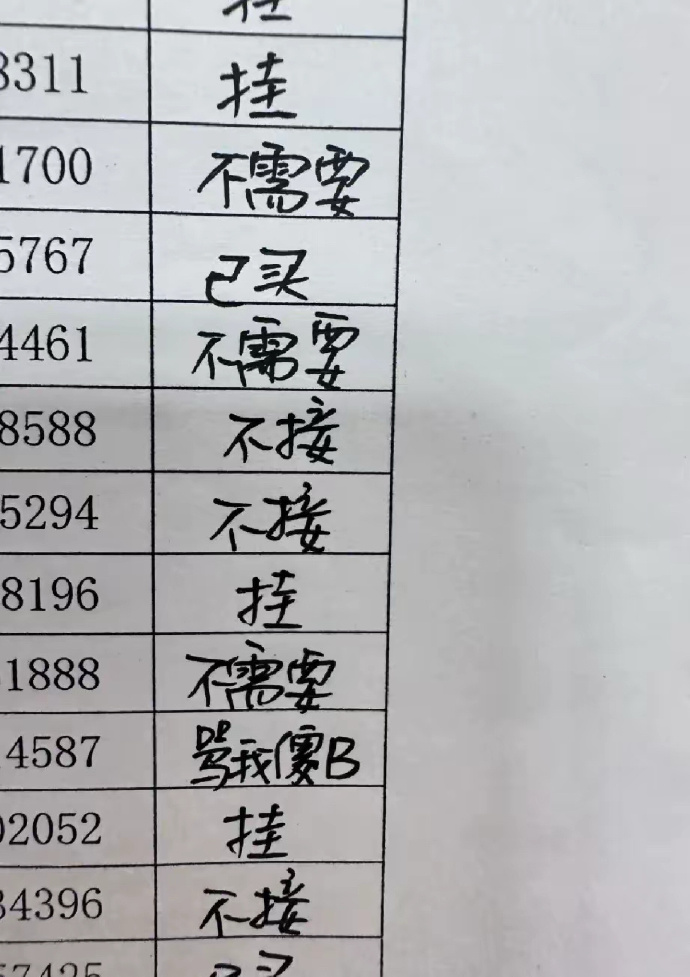 挂
8311 挂
1700 不需要
5767 已买
4461 不需要
8588 不接
5294 不接
8196 挂
1888 不需要
4587 骂我傻B
02052 挂
34396 不接
57425